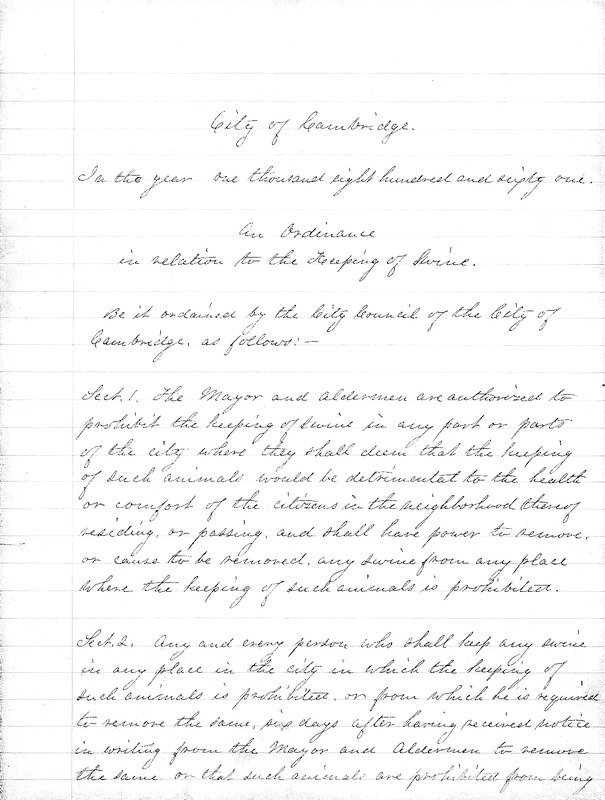 City of Cambridge.
In the year one thousand eight hundred and sixty one.
An Ordinance
in relation to the Keeping of Swine.
Be it ordained by the City Council of the City of
Cambridge, as follows:—
Sect. 1. The Mayor and Aldermen are authorized to
prohibit the keeping of swine in any part or parts
of the city where they shall deem that the keeping
of such animals would be detrimental to the health
or comfort of the citizens in the neighborhood thereof
residing, or passing, and shall have power to remove,
or cause to be removed, any swine from any place
where the keeping of such animals is prohibited.
Sect. 2. Any and every person who shall keep any swine
in any place in the city in which the keeping of
such animals is prohibited, or from which he is required
to remove the same, six days after having received notice
in writing from the Mayor and Aldermen to remove
the same, or that such animals are prohibited from being